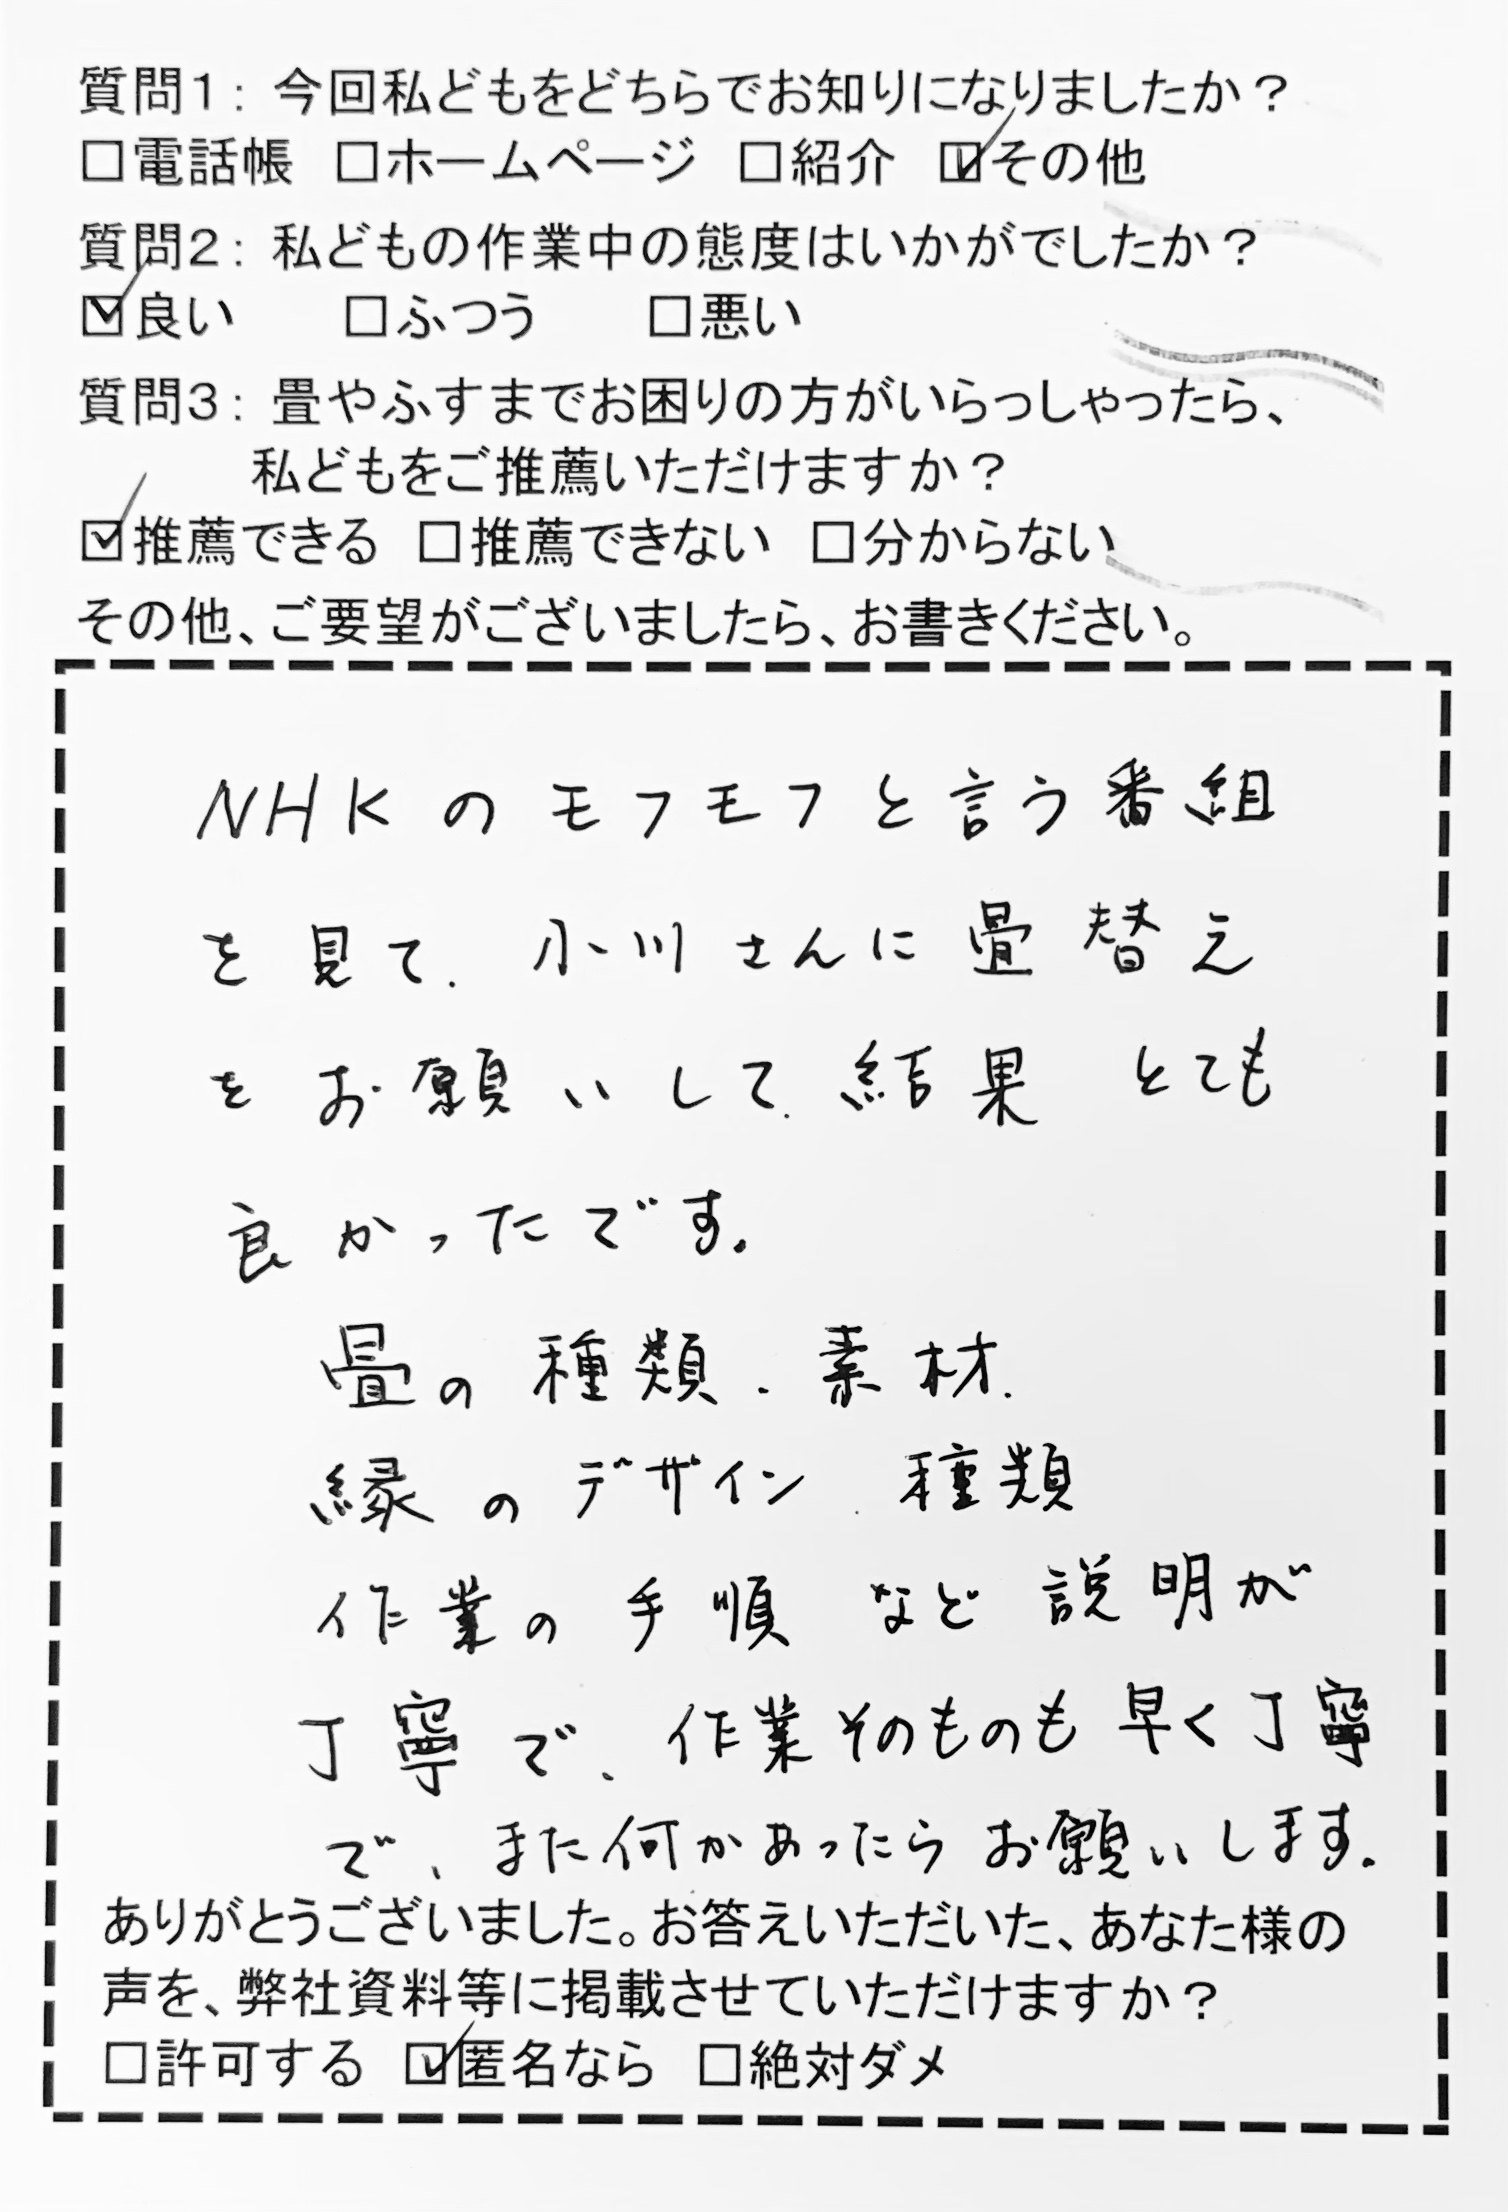 質問１：今回私どもをどちらでお知りになりましたか？
□電話帳 □ホームページ □紹介 ☑その他
質問２：私どもの作業中の態度はいかがでしたか？
☑良い □ふつう □悪い
質問３：畳やふすまでお困りの方がいらっしゃったら、
私どもをご推薦いただけますか？
☑推薦できる □推薦できない □分からない
その他、ご要望がございましたら、お書きください。
NHKのモフモフと言う番組
を見て、小川さんに畳替え
をお願いして、結果 とても
良かったです。
畳の種類、素材、
縁のデザイン、種類
作業の手順 など 説明が
丁寧で、作業そのものも早く丁寧
で、また何かあったらお願いします。
ありがとうございました。お答えいただいた、あなた様の
声を、弊社資料等に掲載させていただけますか？
□許可する ☑匿名なら □絶対ダメ